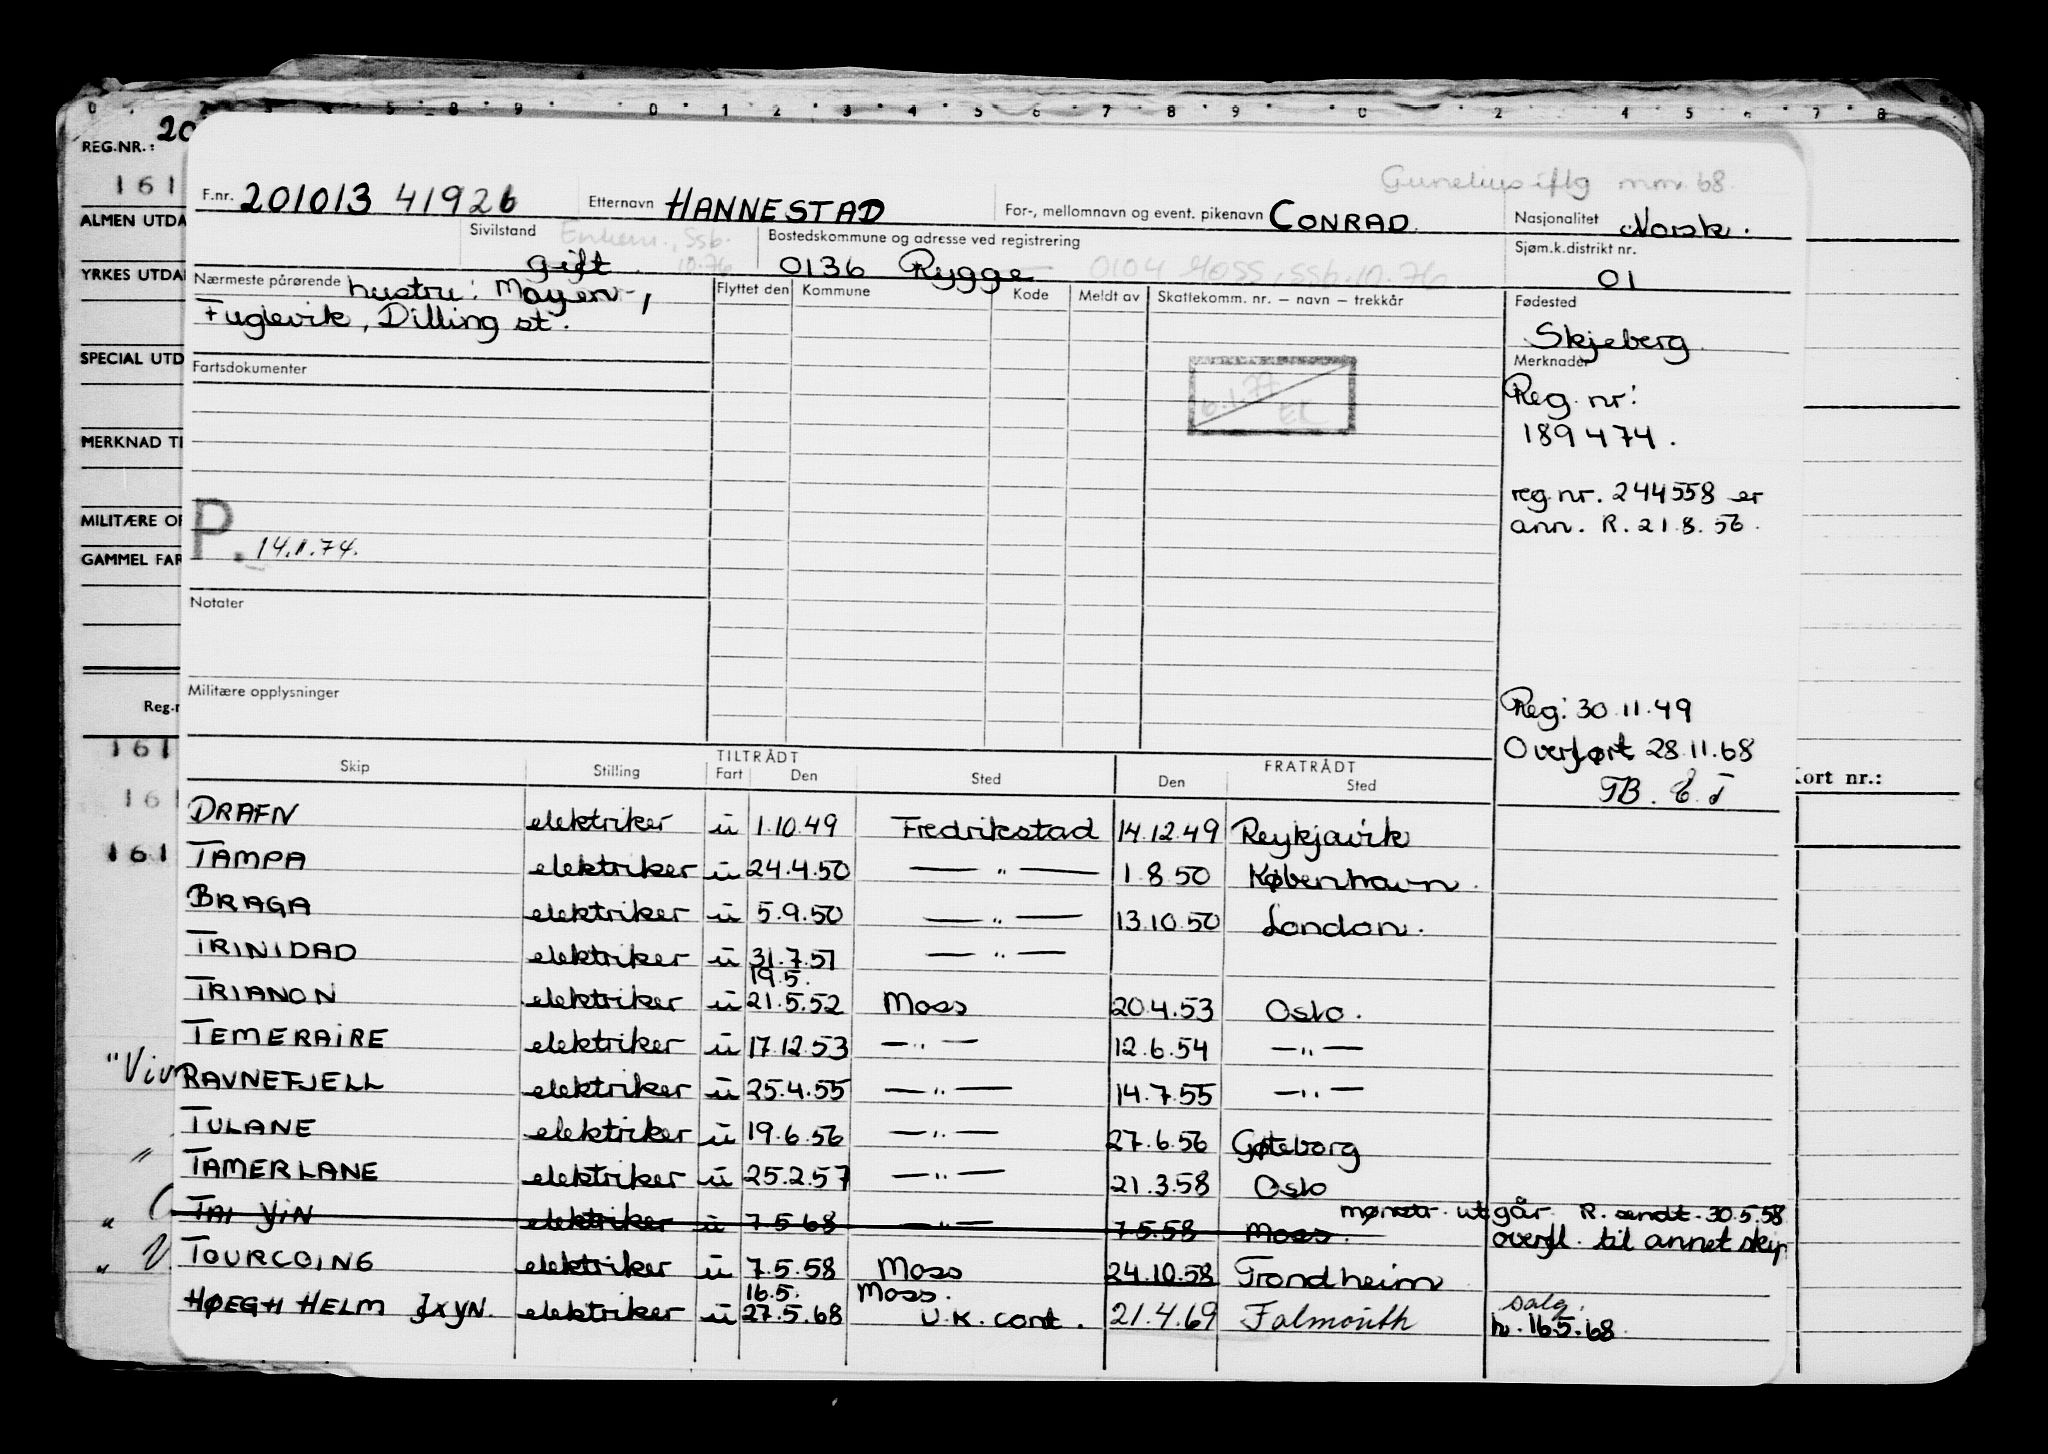 REG.NR.: 20
161
ALMEN UTDA
YRKES UTDA
SPECIAL UTD
MERKNAD TI
MILITÆRE OP
GAMMEL FAR
Reg.n
161
161
161
"Viv
"
"
"
Kort nr.:
Gunelius iflg mm. 68.
F.nr. 201013 41926 Etternavn HANNESTAD For-, mellomnavn og event. pikenavn CONRAD. Nasjonalitet Norsk.
Sivilstand gift. Enkem., Ssb. 10.76 Bostedskommune og adresse ved registrering 0136 Rygge 0104 Moss, Ssb. 10.76 Sjøm.k.distrikt nr. 01
Nærmeste pårørende hustru: Mayen-, Flyttet den Kommune Kode Meldt av Skattekomm. nr. – navn – trekkår Fødested
Fuglevik, Dilling st. Skjeberg
Fartsdokumenter Merknader
6.1.77 EL
Reg. nr:
189474.
reg. nr. 244558 er
ann. R. 21.8.56.
P. 14.11.74.
Notater
Militære opplysninger
Reg: 30.11.49
Overført 28.11.68
TB. E.T
TILTRÅDT FRATRÅDT
Skip Stilling Fart Den Sted Den Sted
DRAFN elektriker u 1.10.49 Fredrikstad 14.12.49 Reykjavik
TAMPA elektriker u 24.4.50 — " — 1.8.50 København.
BRAGA elektriker u 5.9.50 — " — 13.10.50 London.
TRINIDAD elektriker u 31.7.51 — " —
19.5.
TRIANON elektriker u 21.5.52 Moss 20.4.53 Oslo.
TEMERAIRE elektriker u 17.12.53 — " — 12.6.54 — " —
RAVNEFJELL elektriker u 25.4.55 — " — 14.7.55 — " —
TULANE elektriker u 19.6.56 — " — 27.6.56 Gøteborg
TAMERLANE elektriker u 25.2.57 — " — 21.3.58 Oslo
mønstr. utgår R. sendt. 30.5.58
TAI YIN elektriker u 7.5.68 — " — 7.5.58 Moss. overfl. til annet skip
TOURCOING elektriker u 7.5.58 Moss 24.10.58 Trondheim
16.5. Moss. salg.
HØEGH HELM JXYN. elektriker u 27.5.68 U.K. cont. 21.4.69 Falmouth h. 16.5.68.